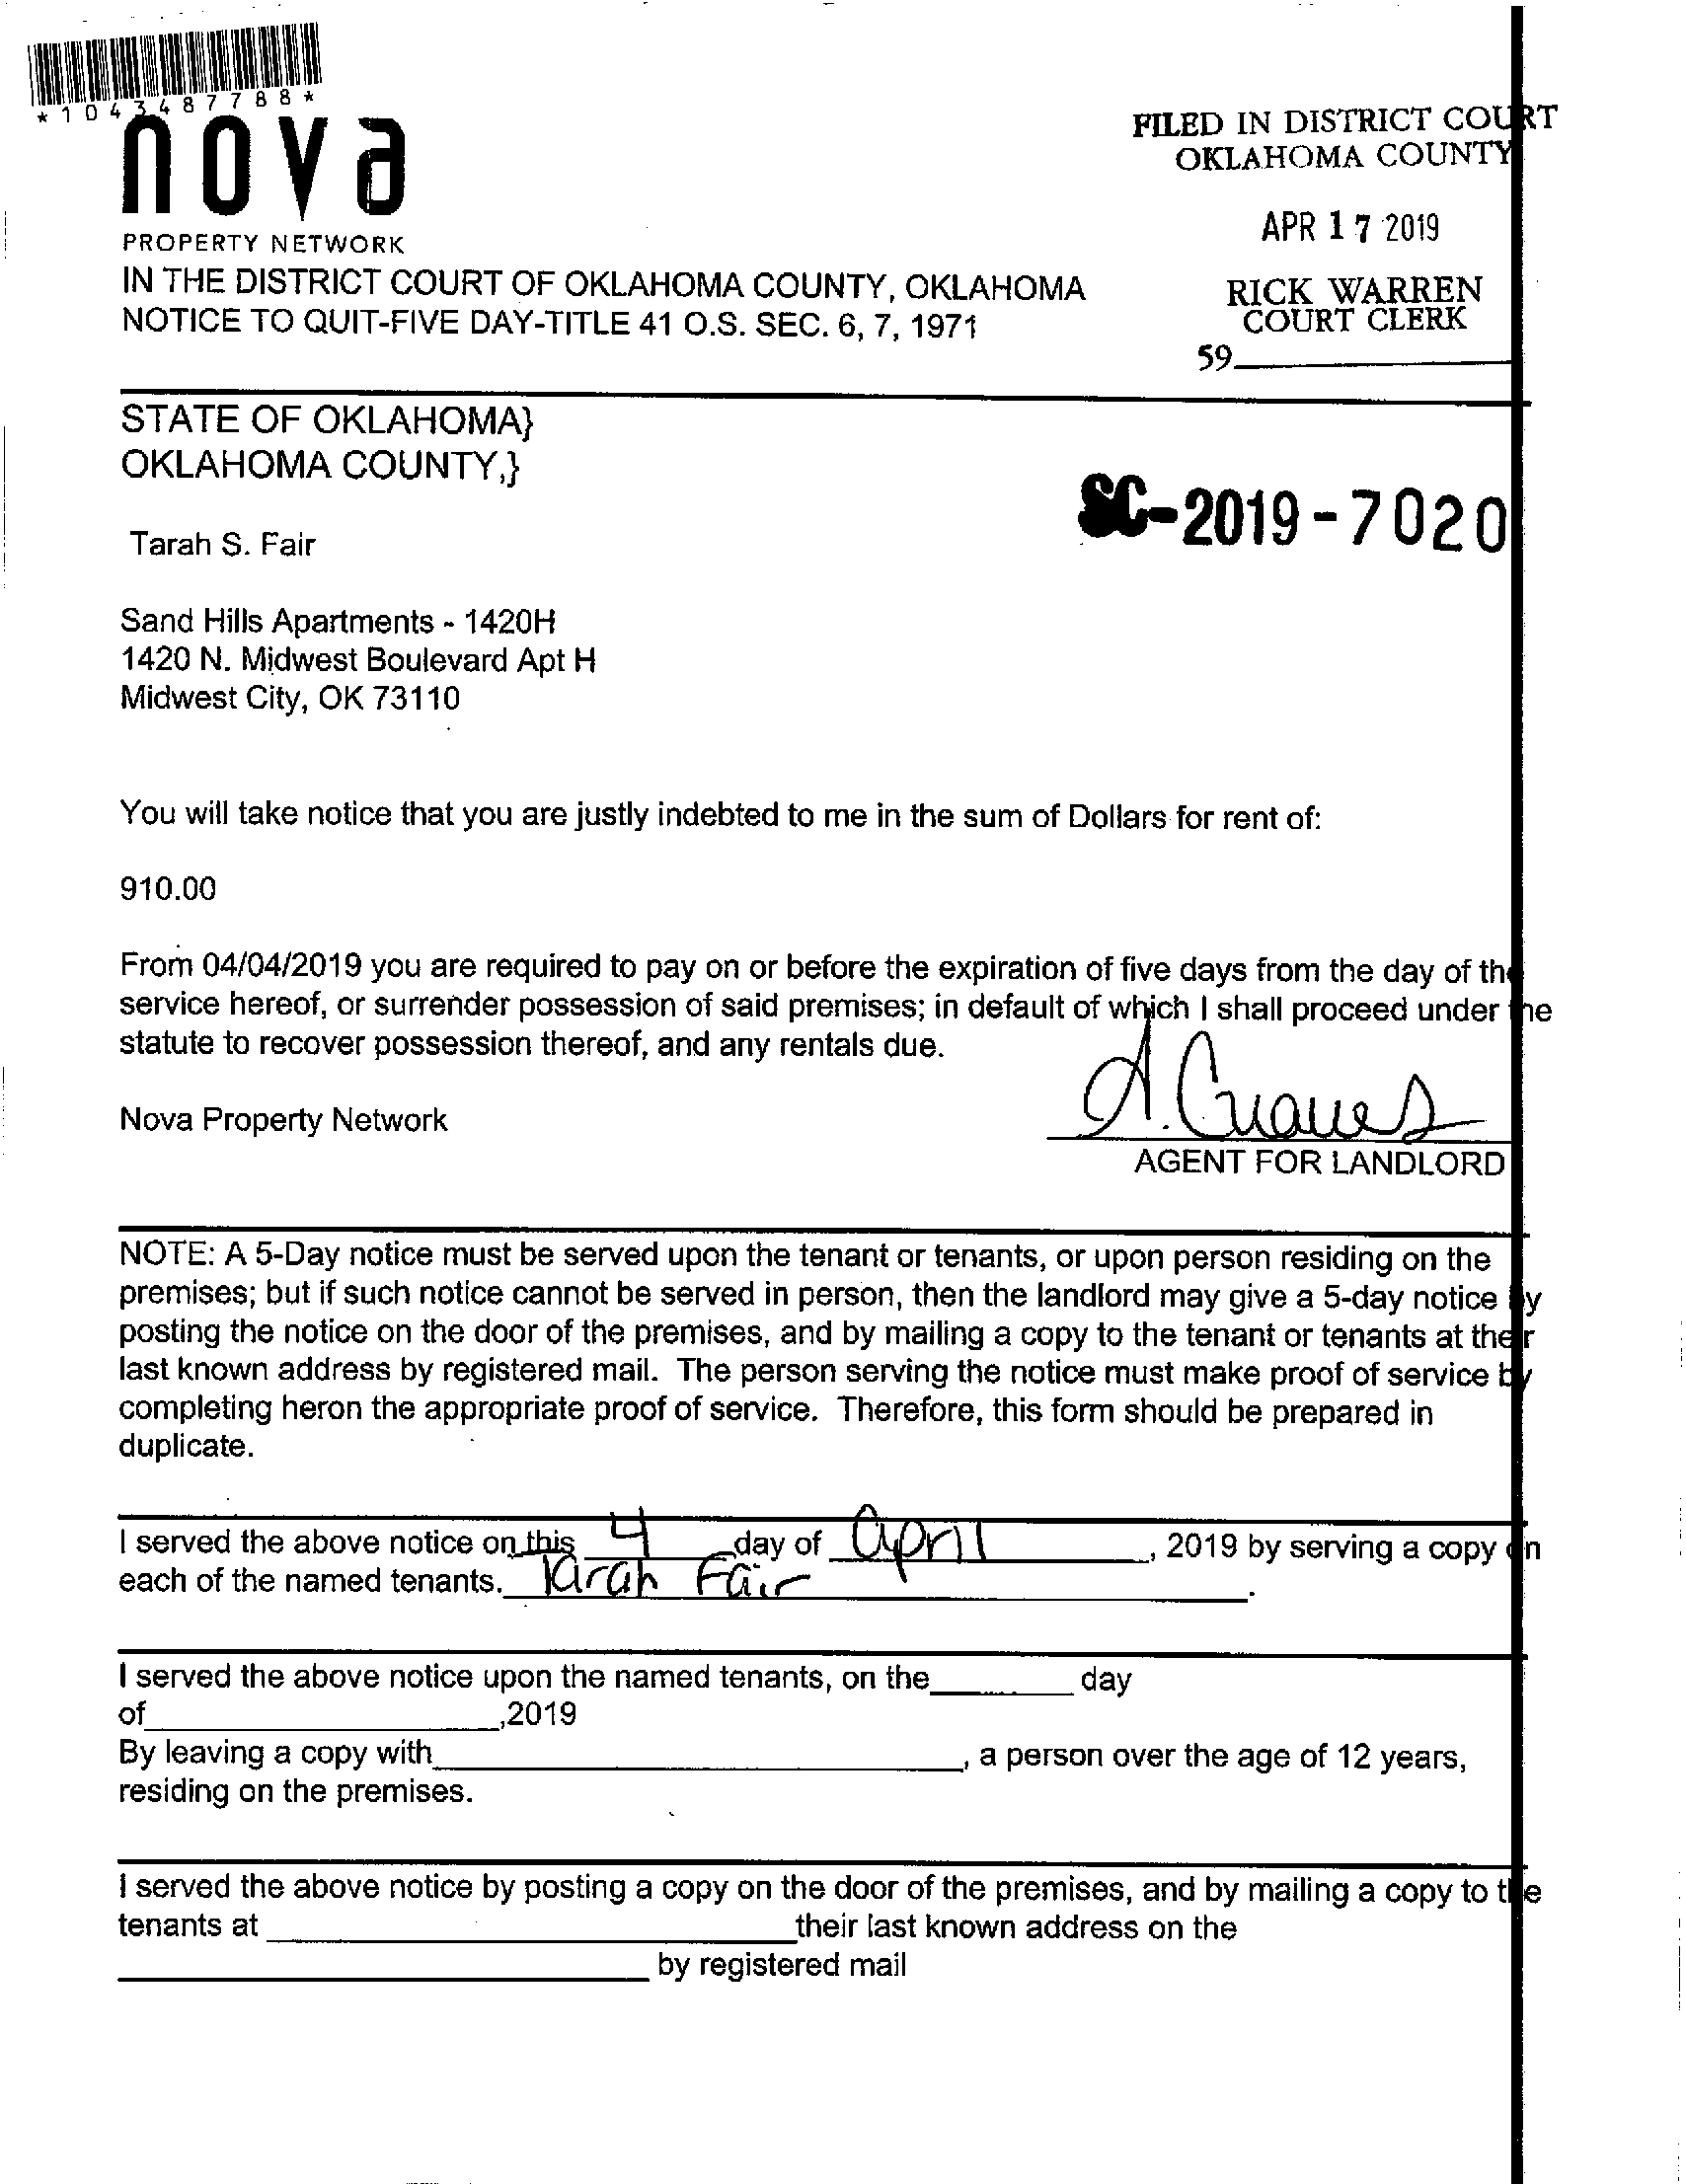 *1043487788*
nova
PROPERTY NETWORK
FILED IN DISTRICT COURT
OKLAHOMA COUNTY
APR 17 2019
RICK WARREN
COURT CLERK
59
IN THE DISTRICT COURT OF OKLAHOMA COUNTY, OKLAHOMA
NOTICE TO QUIT-FIVE DAY-TITLE 41 O.S. SEC. 6, 7, 1971
STATE OF OKLAHOMA}
OKLAHOMA COUNTY,}
SC-2019-7020
Tarah S. Fair
Sand Hills Apartments - 1420H
1420 N. Midwest Boulevard Apt H
Midwest City, OK 73110
You will take notice that you are justly indebted to me in the sum of Dollars for rent of:
910.00
From 04/04/2019 you are required to pay on or before the expiration of five days from the day of the
service hereof, or surrender possession of said premises; in default of which I shall proceed under the
statute to recover possession thereof, and any rentals due.
A. Graves
Nova Property Network
AGENT FOR LANDLORD
NOTE: A 5-Day notice must be served upon the tenant or tenants, or upon person residing on the
premises; but if such notice cannot be served in person, then the landlord may give a 5-day notice by
posting the notice on the door of the premises, and by mailing a copy to the tenant or tenants at their
last known address by registered mail. The person serving the notice must make proof of service by
completing heron the appropriate proof of service. Therefore, this form should be prepared in
duplicate.
I served the above notice on this 4 day of april, 2019 by serving a copy on
each of the named tenants. Tarah Fair.
I served the above notice upon the named tenants, on the________ day
of____________________,2019
By leaving a copy with______________________________, a person over the age of 12 years,
residing on the premises.
I served the above notice by posting a copy on the door of the premises, and by mailing a copy to the
tenants at ______________________________their last known address on the
______________________________ by registered mail